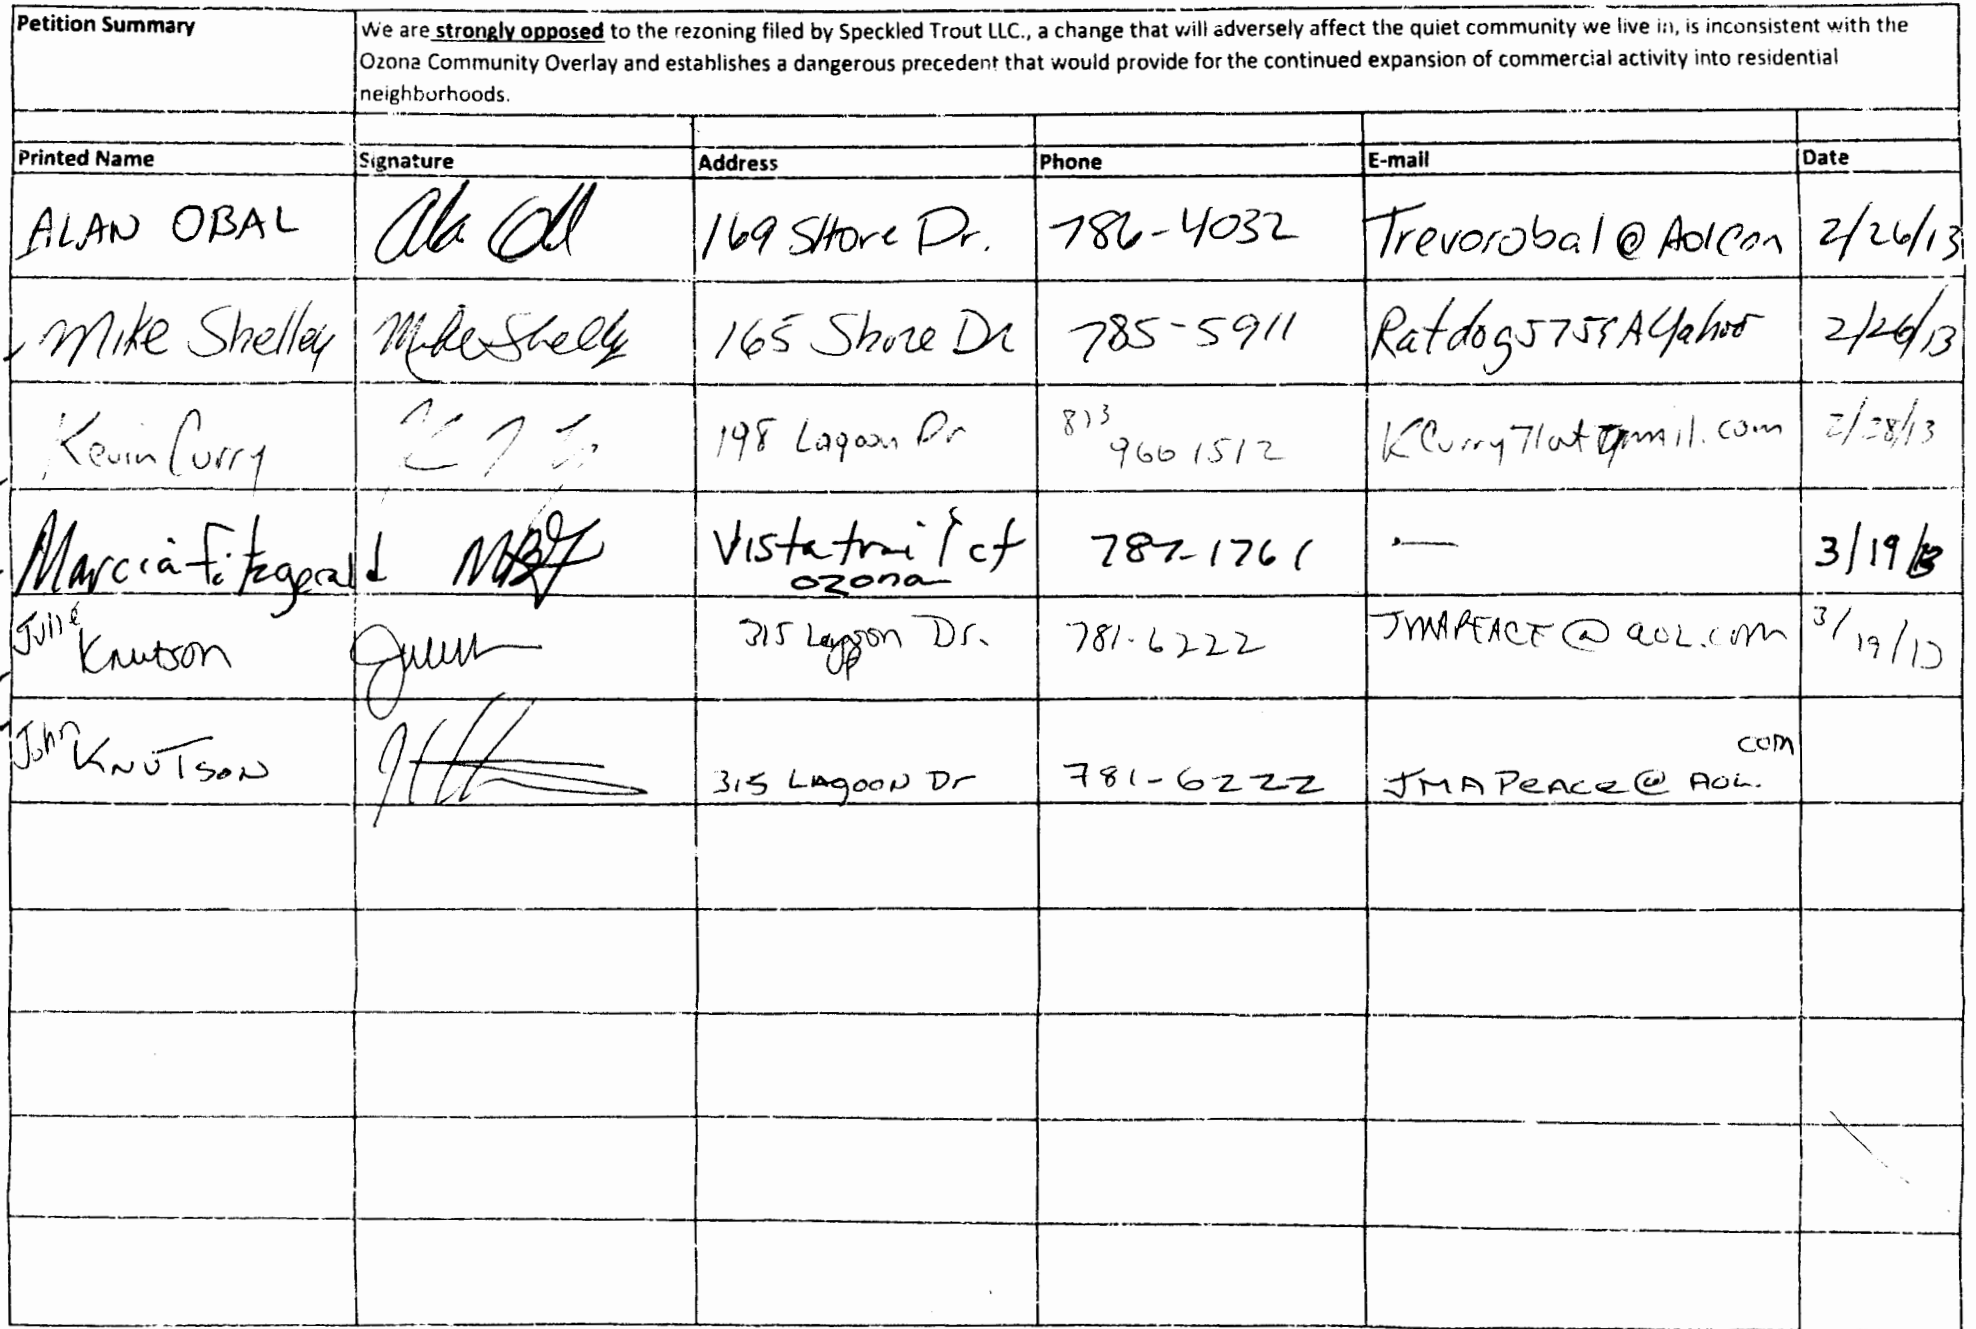 Petition Summary
We are strongly opposed to the rezoning filed by Speckled Trout LLC., a change that will adversely affect the quiet community we live in, is inconsistent with the
Ozona Community Overlay and establishes a dangerous precedent that would provide for the continued expansion of commercial activity into residential
neighborhoods.
Printed Name Signature Address Phone E-mail Date
ALAN OBAL 169 Shore Dr. 786-4032 Trevorobal@Aol.Com 2/26/13
Mike Shelley Mike Shelly 165 Shore Dr 785-5911 2/26/13
Kevin Curry 198 Lagoon Dr 813 966 1512 KCurry71at gmail.com 2/28/13
Marcia Fitzgerald MBF Vista trail ct 787-1761 — 3/19/13
Ozona
Julie Knutson 315 Lagoon Dr. 781-6222 JMAPEACE@aol.com 3/19/13
John KNUTSON 315 LAGOON Dr 781-6222 JMAPEACE@AOL. com